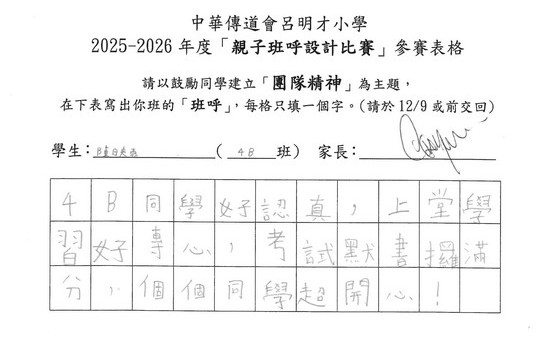 中華傳道會呂明才小學
2025-2026 年度「親子班呼設計比賽」參賽表格
請以鼓勵同學建立「團隊精神」為主題，
在下表寫出你班的「班呼」，每格只填一個字。(請於 12/9 或前交回)
學生： ( 4B 班) 家長：
4B同學好認真，上堂學
習好專心，考試默書攞滿
分，個個同學超開心！